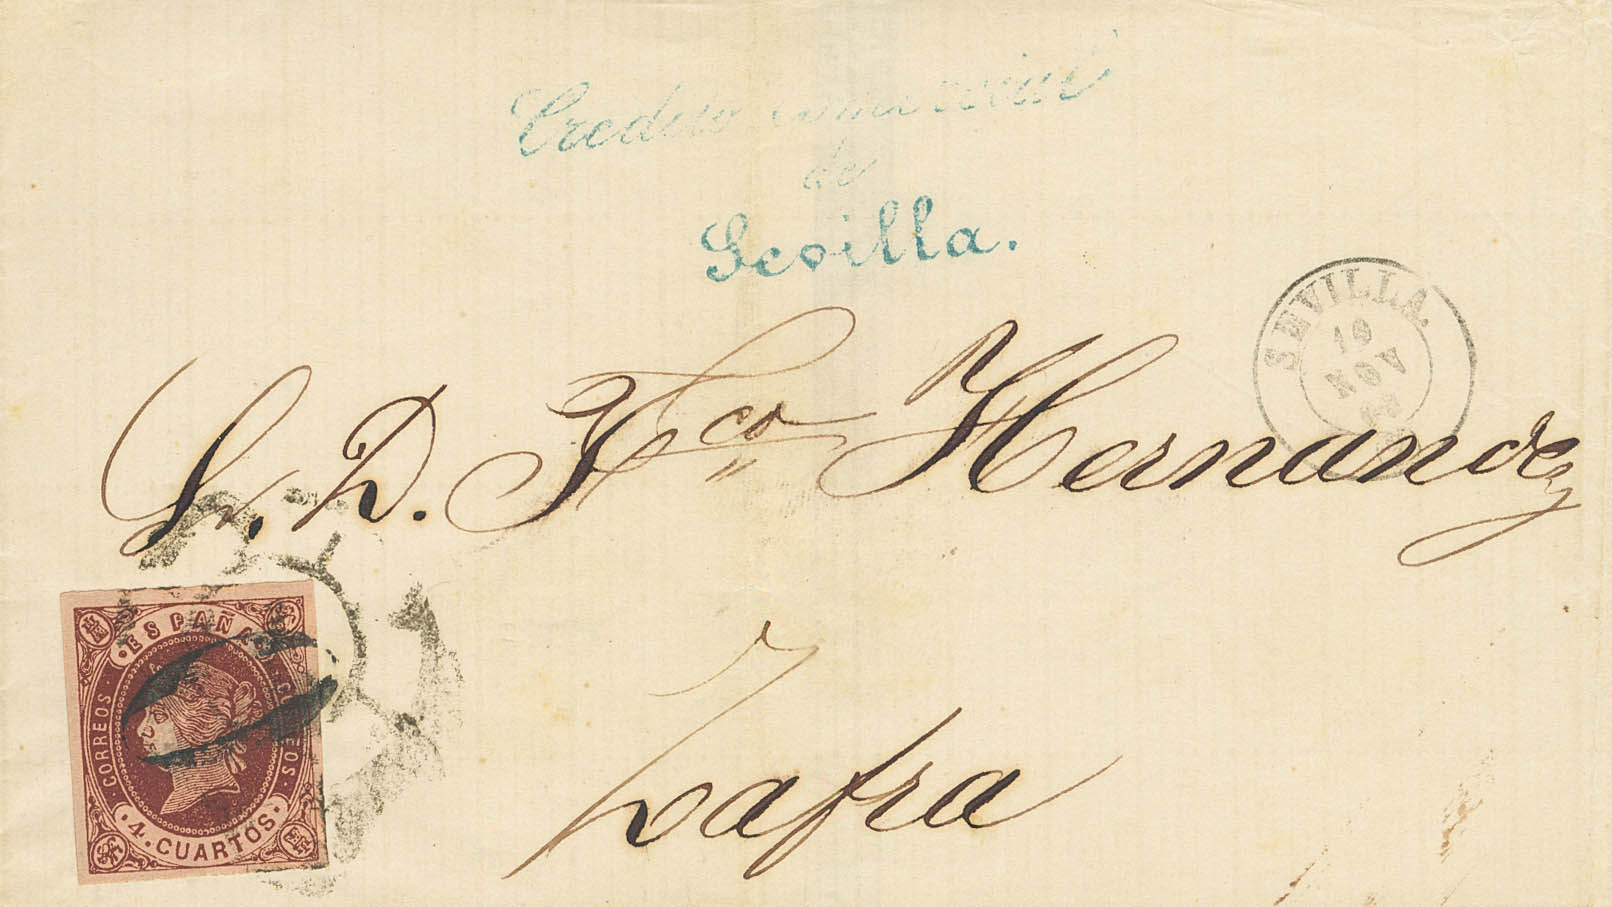 Credito comercial
de
Sevilla.
SEVILLA.
10
NOV
Sr. D. Fco Hernandez
Zafra
ESPAÑA
CORREOS
CORREOS
4. CUARTOS